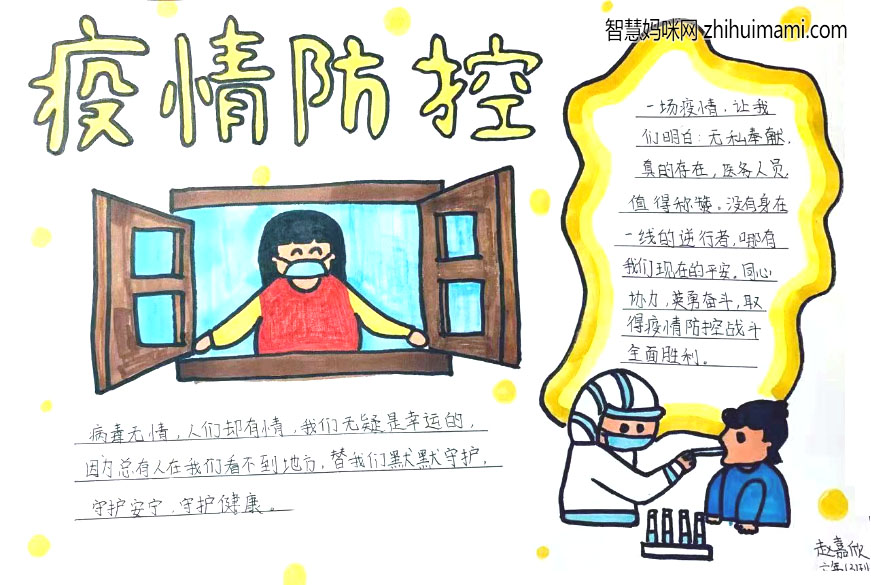 智慧妈咪网 zhihuimami.com
疫情防控
一场疫情，让我
们明白：无私奉献，
真的存在，医务人员，
值得称赞。没有身在
一线的逆行者，哪有
我们现在的平安。同心
协力，英勇奋斗，取
得疫情防控战斗
全面胜利。
病毒无情，人们却有情，我们无疑是幸运的，
因为总有人在我们看不到地方，替我们默默守护，
守护安宁，守护健康。
赵嘉欣